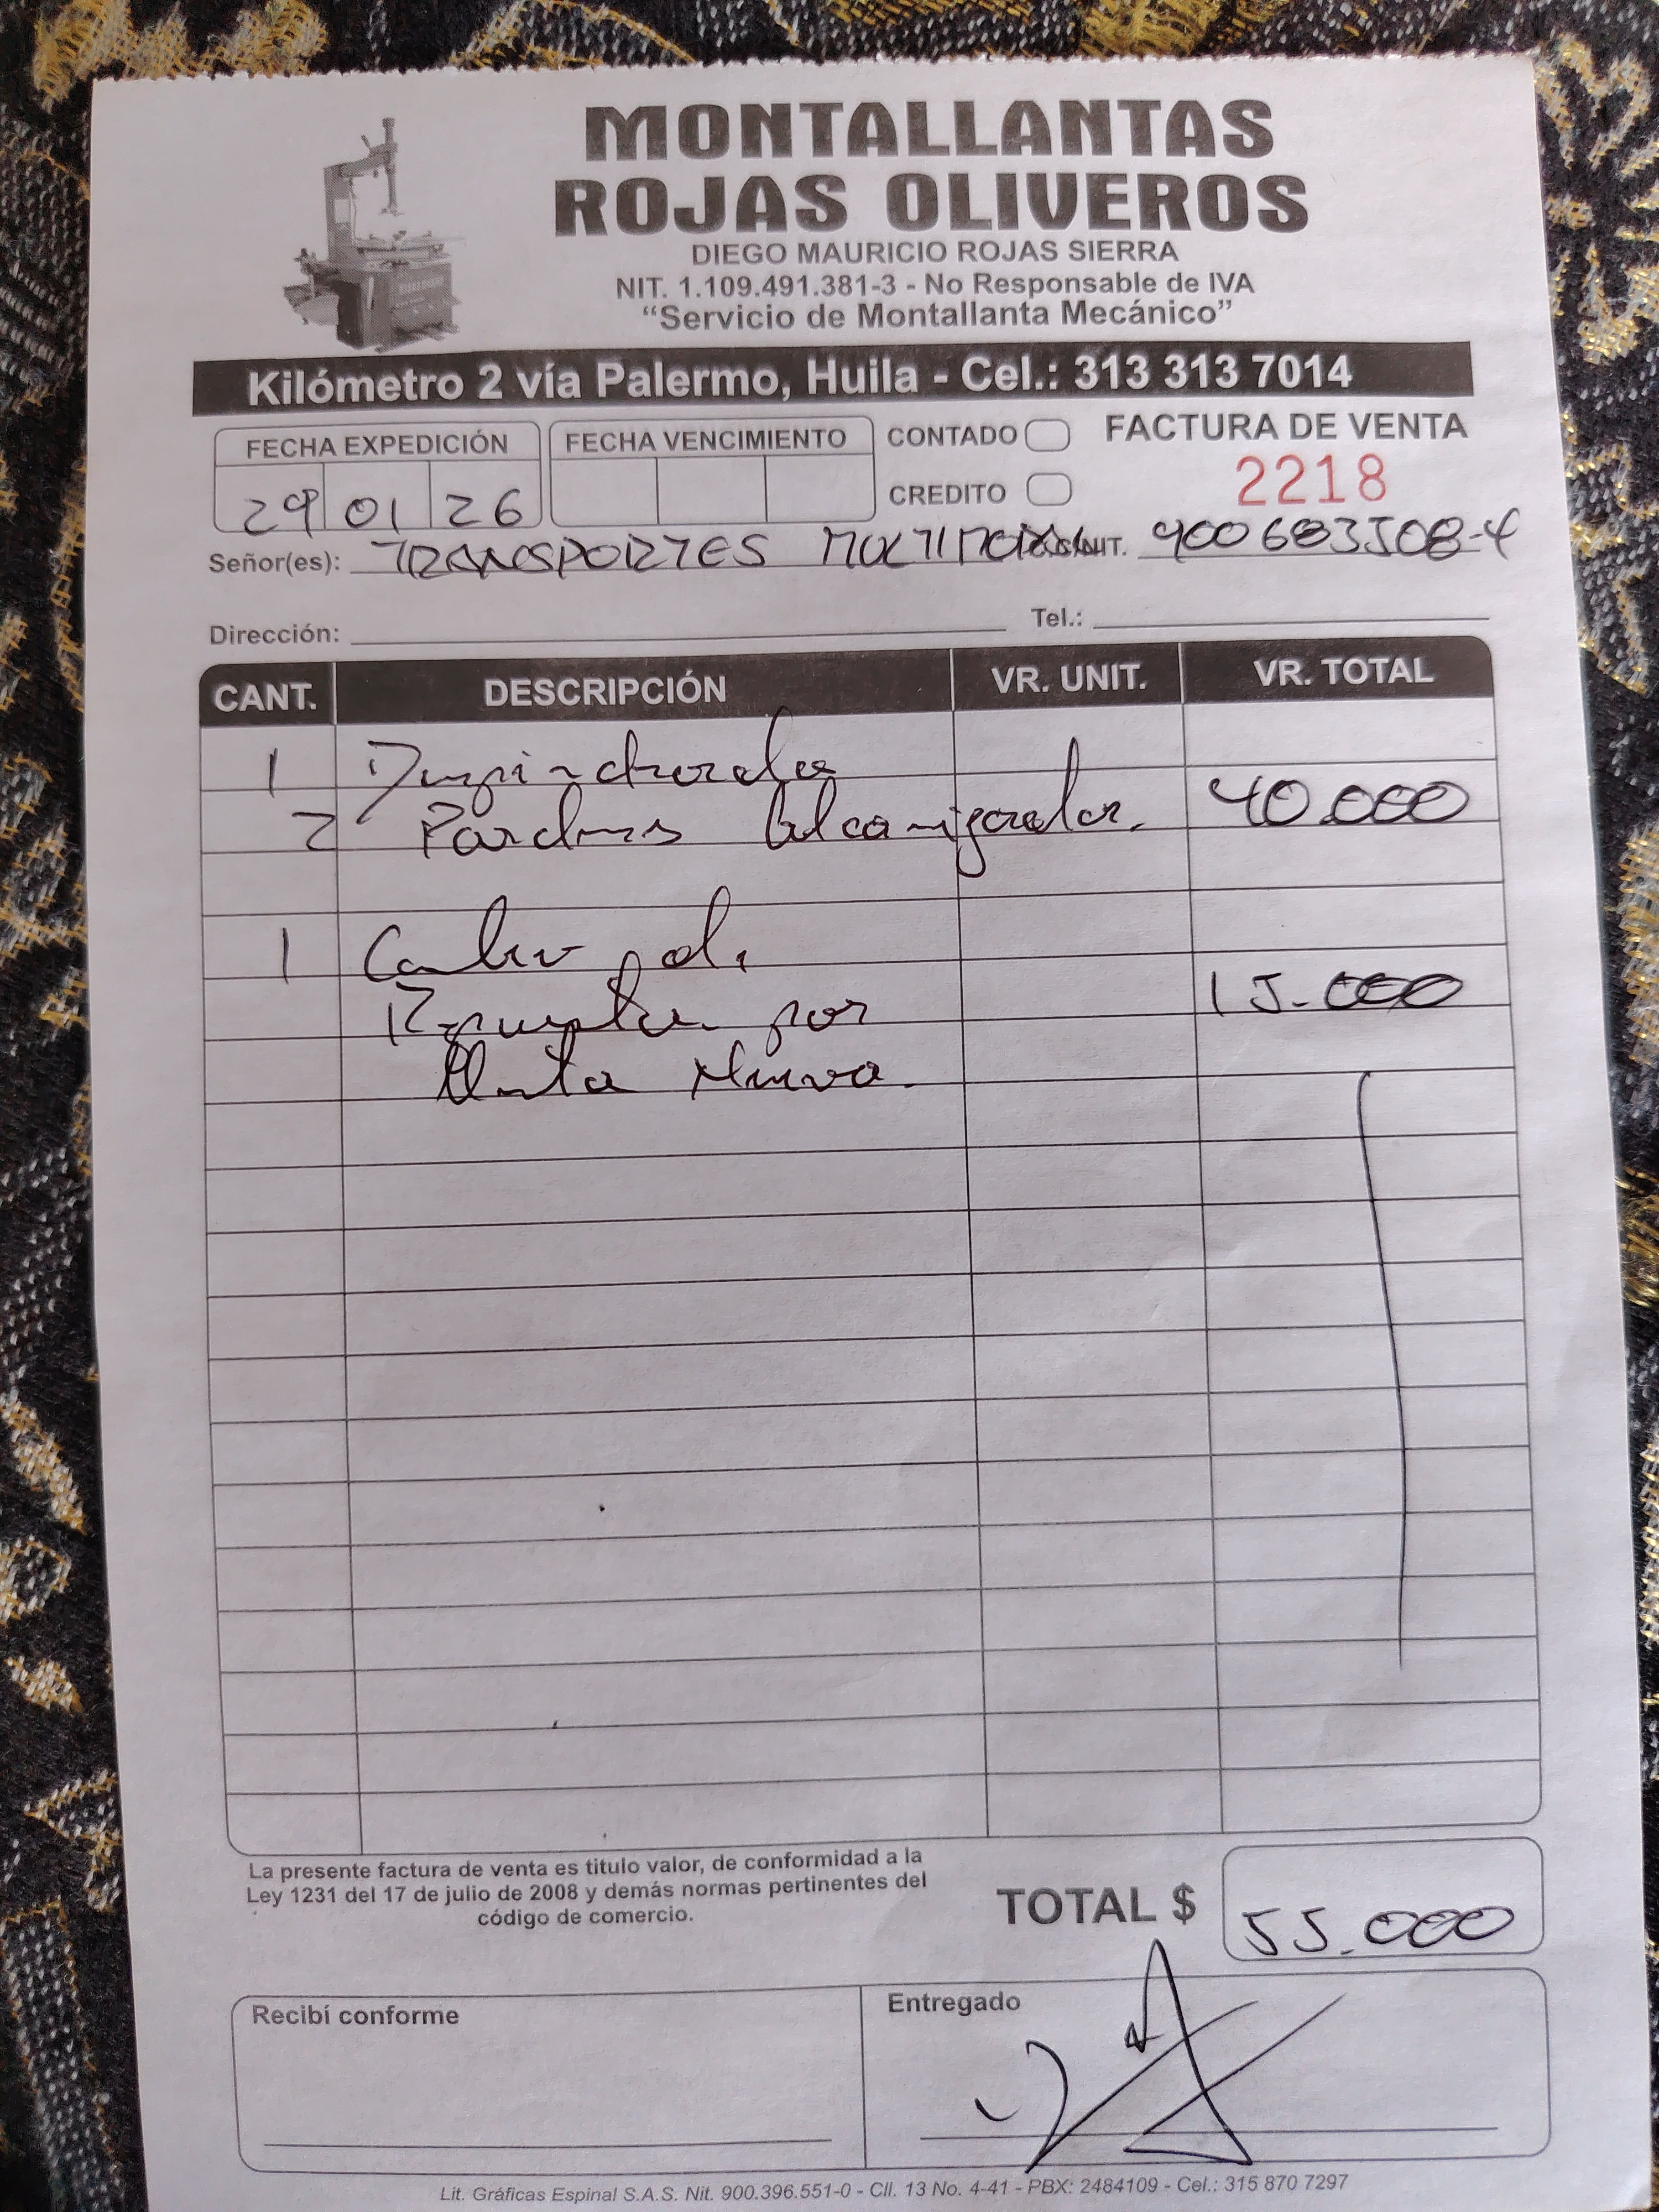 MONTALLANTAS
ROJAS OLIVEROS
DIEGO MAURICIO ROJAS SIERRA
NIT. 1.109.491.381-3 - No Responsable de IVA
“Servicio de Montallanta Mecánico”
Kilómetro 2 vía Palermo, Huila - Cel.: 313 313 7014
FECHA EXPEDICIÓN FECHA VENCIMIENTO CONTADO FACTURA DE VENTA
29 01 26 CREDITO 2218
Señor(es): TRANSPORTES MULTIMODAL NIT. 900683508-4
Dirección: Tel.:
CANT. DESCRIPCIÓN VR. UNIT. VR. TOTAL
1 Despinchada
2 Parches 40.000
1 Cambio de
Repuesta por 15.000
llanta Nueva.
La presente factura de venta es titulo valor, de conformidad a la
Ley 1231 del 17 de julio de 2008 y demás normas pertinentes del
código de comercio.
TOTAL $ 55.000
Recibí conforme Entregado
Lit. Gráficas Espinal S.A.S. Nit. 900.396.551-0 - Cll. 13 No. 4-41 - PBX: 2484109 - Cel.: 315 870 7297